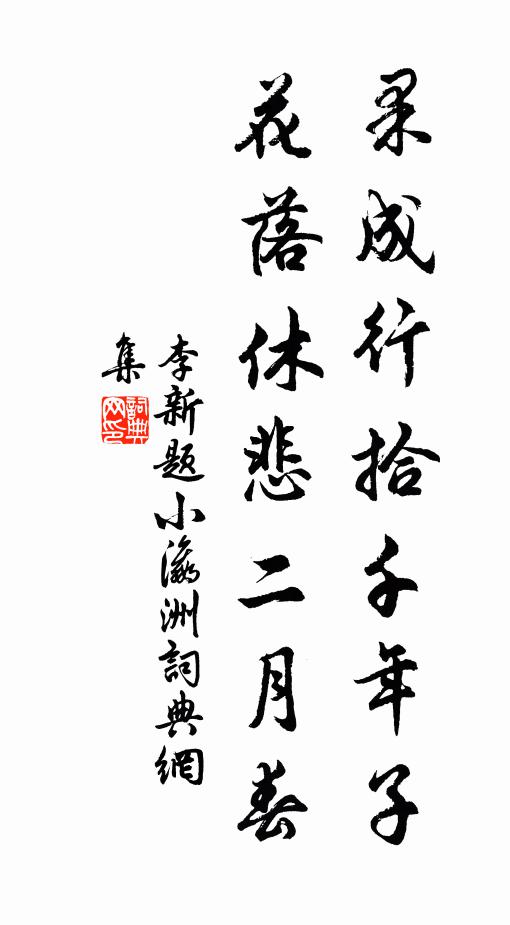 果成行拾千年子
花落休悲二月春
李新題小瀛洲詞典網
集
詞典
网印